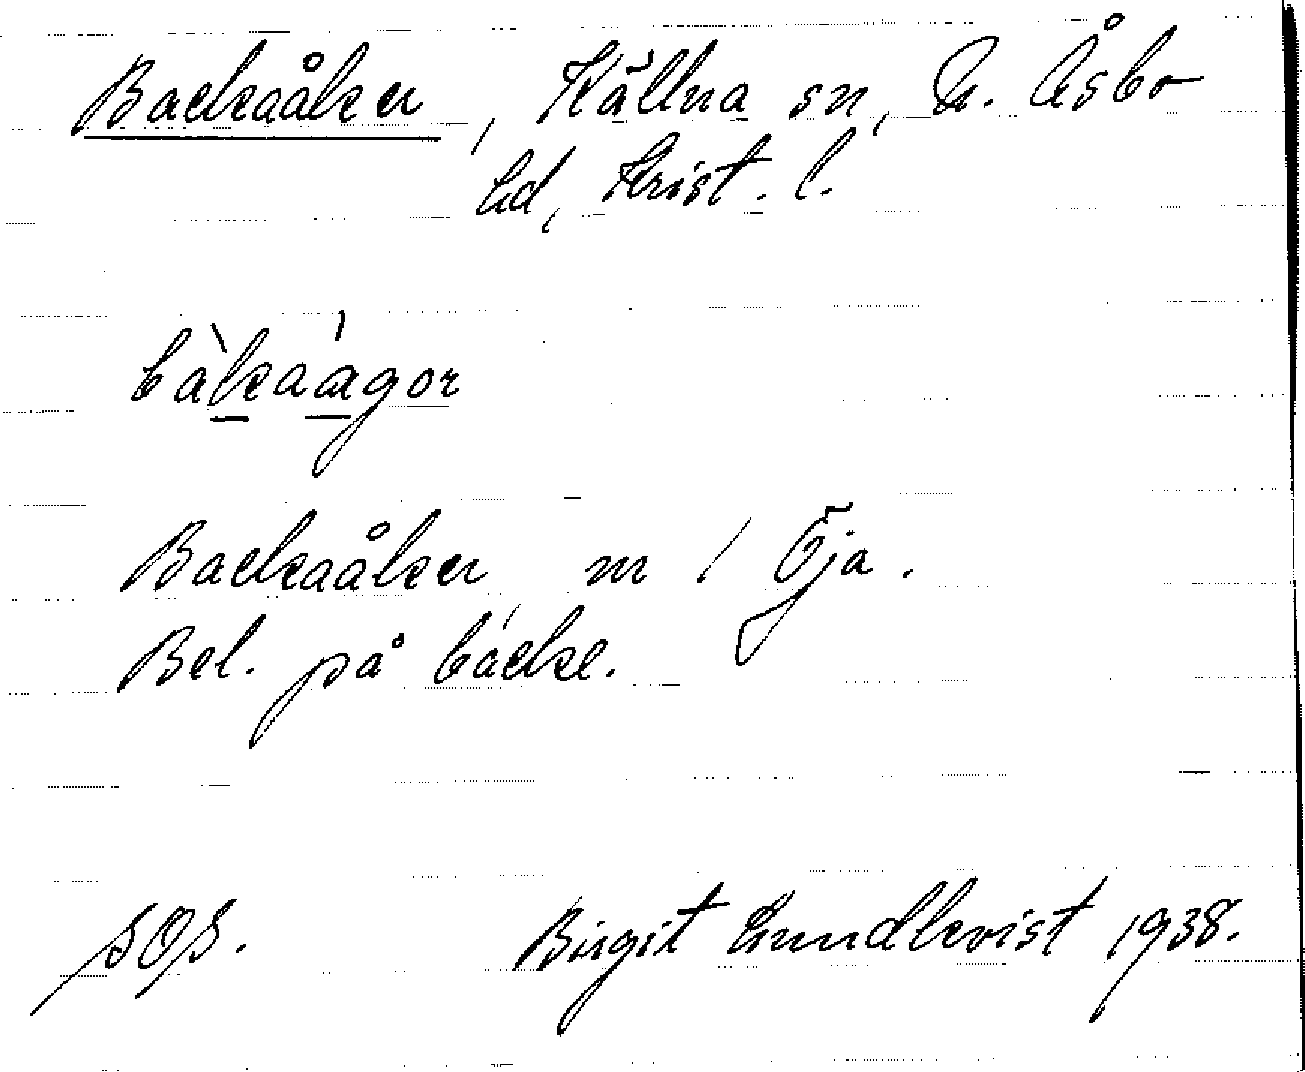 Backaåker, Källna sn, N. Åsbo
hd, Krist. l.
bàkaágor
Backaåker m / Öja.
Bel. på backe.
SOS. Birgit Lundkvist 1938.